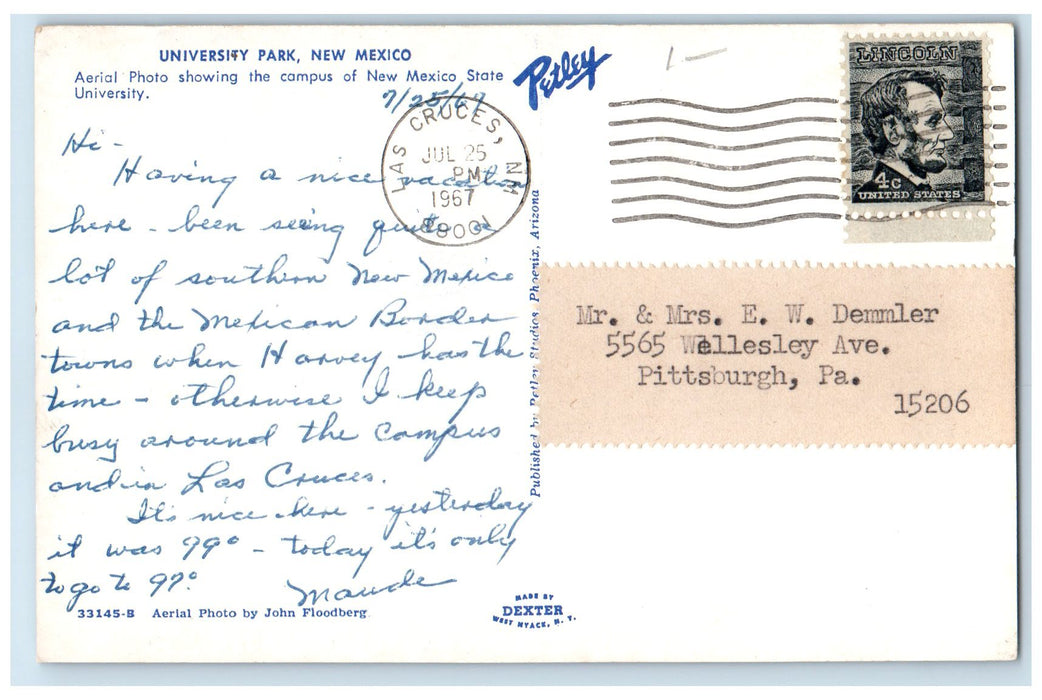 UNIVERSITY PARK, NEW MEXICO
Aerial Photo showing the campus of New Mexico State
University.
7/25/67
Hi -
Having a nice vacation
here - been seeing quite a
lot of southern New Mexico
and the Mexican Border
towns when Harvey has the
time - otherwise I keep
busy around the campus
and in Las Cruces.
It's nice here - yesterday
it was 99° - today it's only
to go to 97°.
Maude
33145-B Aerial Photo by John Floodberg
Petley
LAS CRUCES, NM
JUL 25
PM
1967
88001
1-
LINCOLN
4c
UNITED STATES
Published by Petley Studios, Phoenix, Arizona
Mr. & Mrs. E. W. Demmler
5565 Wellesley Ave.
Pittsburgh, Pa.
15206
MADE BY
DEXTER
WEST NYACK, N. Y.